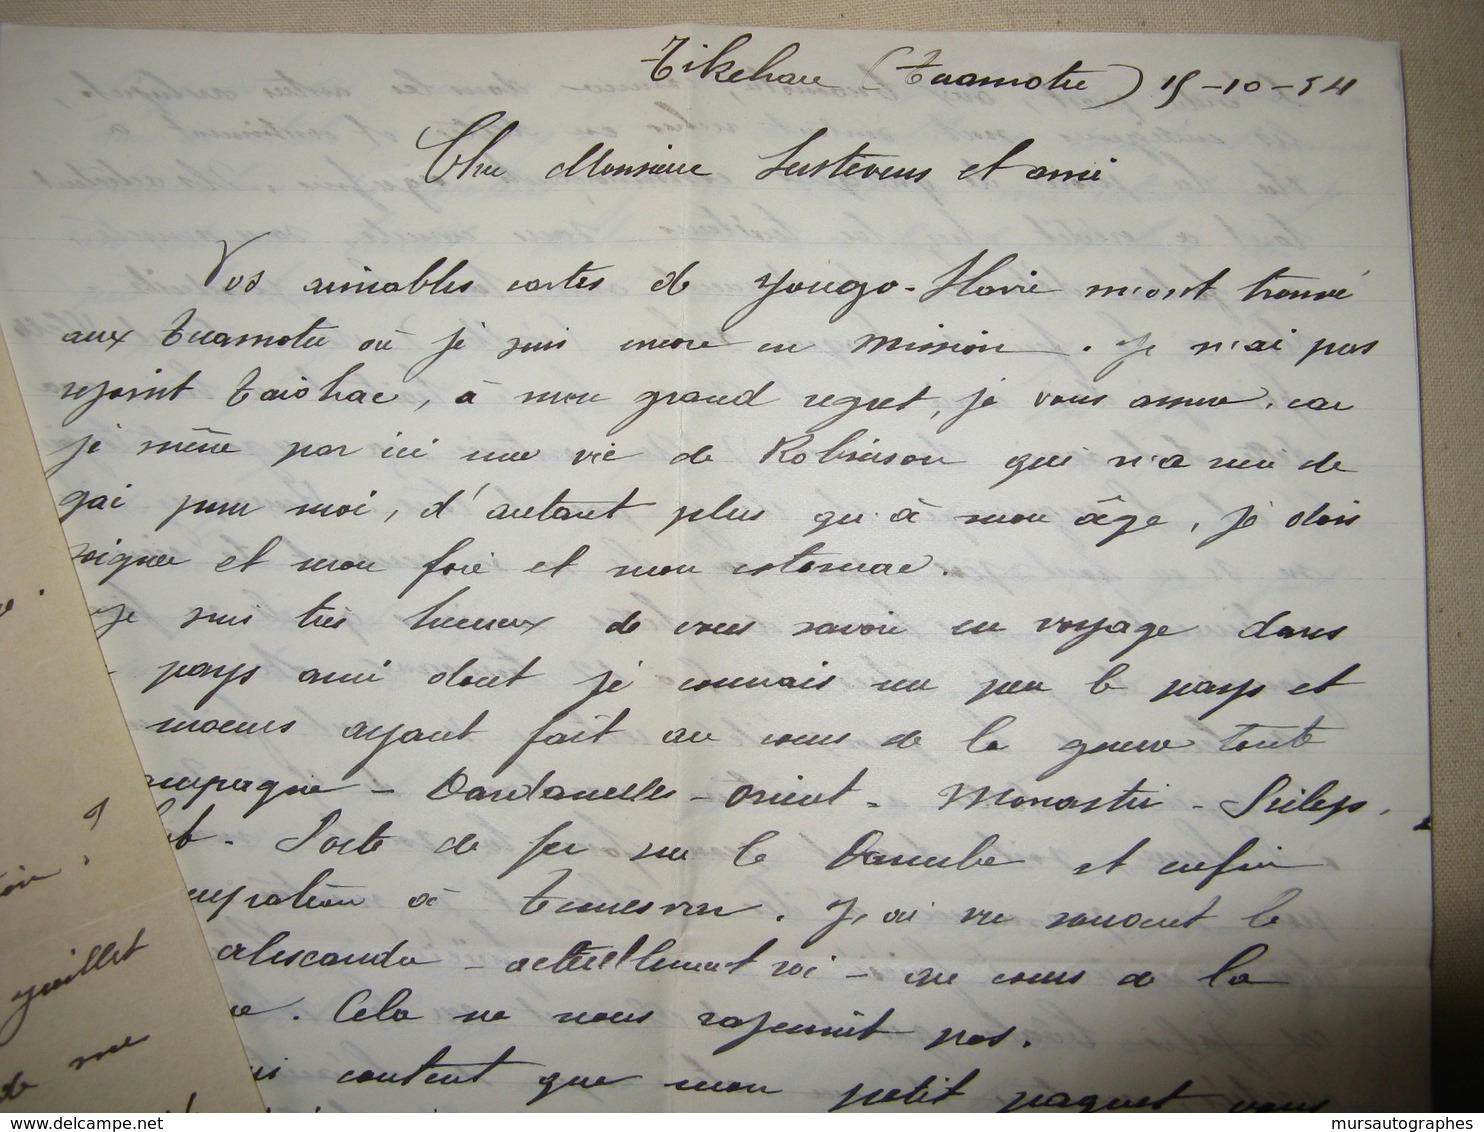 Tikehau (Tuamotu) 15-10-34
Cher Monsieur T'Serstevens et ami
Vos aimables cartes de Yougo-Slavie m'ont trouvé
aux Tuamotu où je suis encore en mission. Je n'ai pas
rejoint Taiohae, à mon grand regret, je vous assure, car
je mène par ici une vie de Robinson qui n'a rien de
gai pour moi, d'autant plus qu'à mon âge, je dois
soigner et mon foie et mon estomac.
Je suis très heureux de vous savoir en voyage dans
pays ami dont je connais un peu le pays et
moeurs ayant fait au cours de la guerre toute
campagne - Dardanelles - Orient - Monastir - Prilep,
Porte de fer sur le Danube et enfin
occupation à Temesvar. J'ai vu souvent le
Alexandre - actuellement roi - au cours de la
Cela ne nous rajeunit pas.
suis content que mon petit paquet vous
?
juillet
de me
delcampe.net
mursautographes